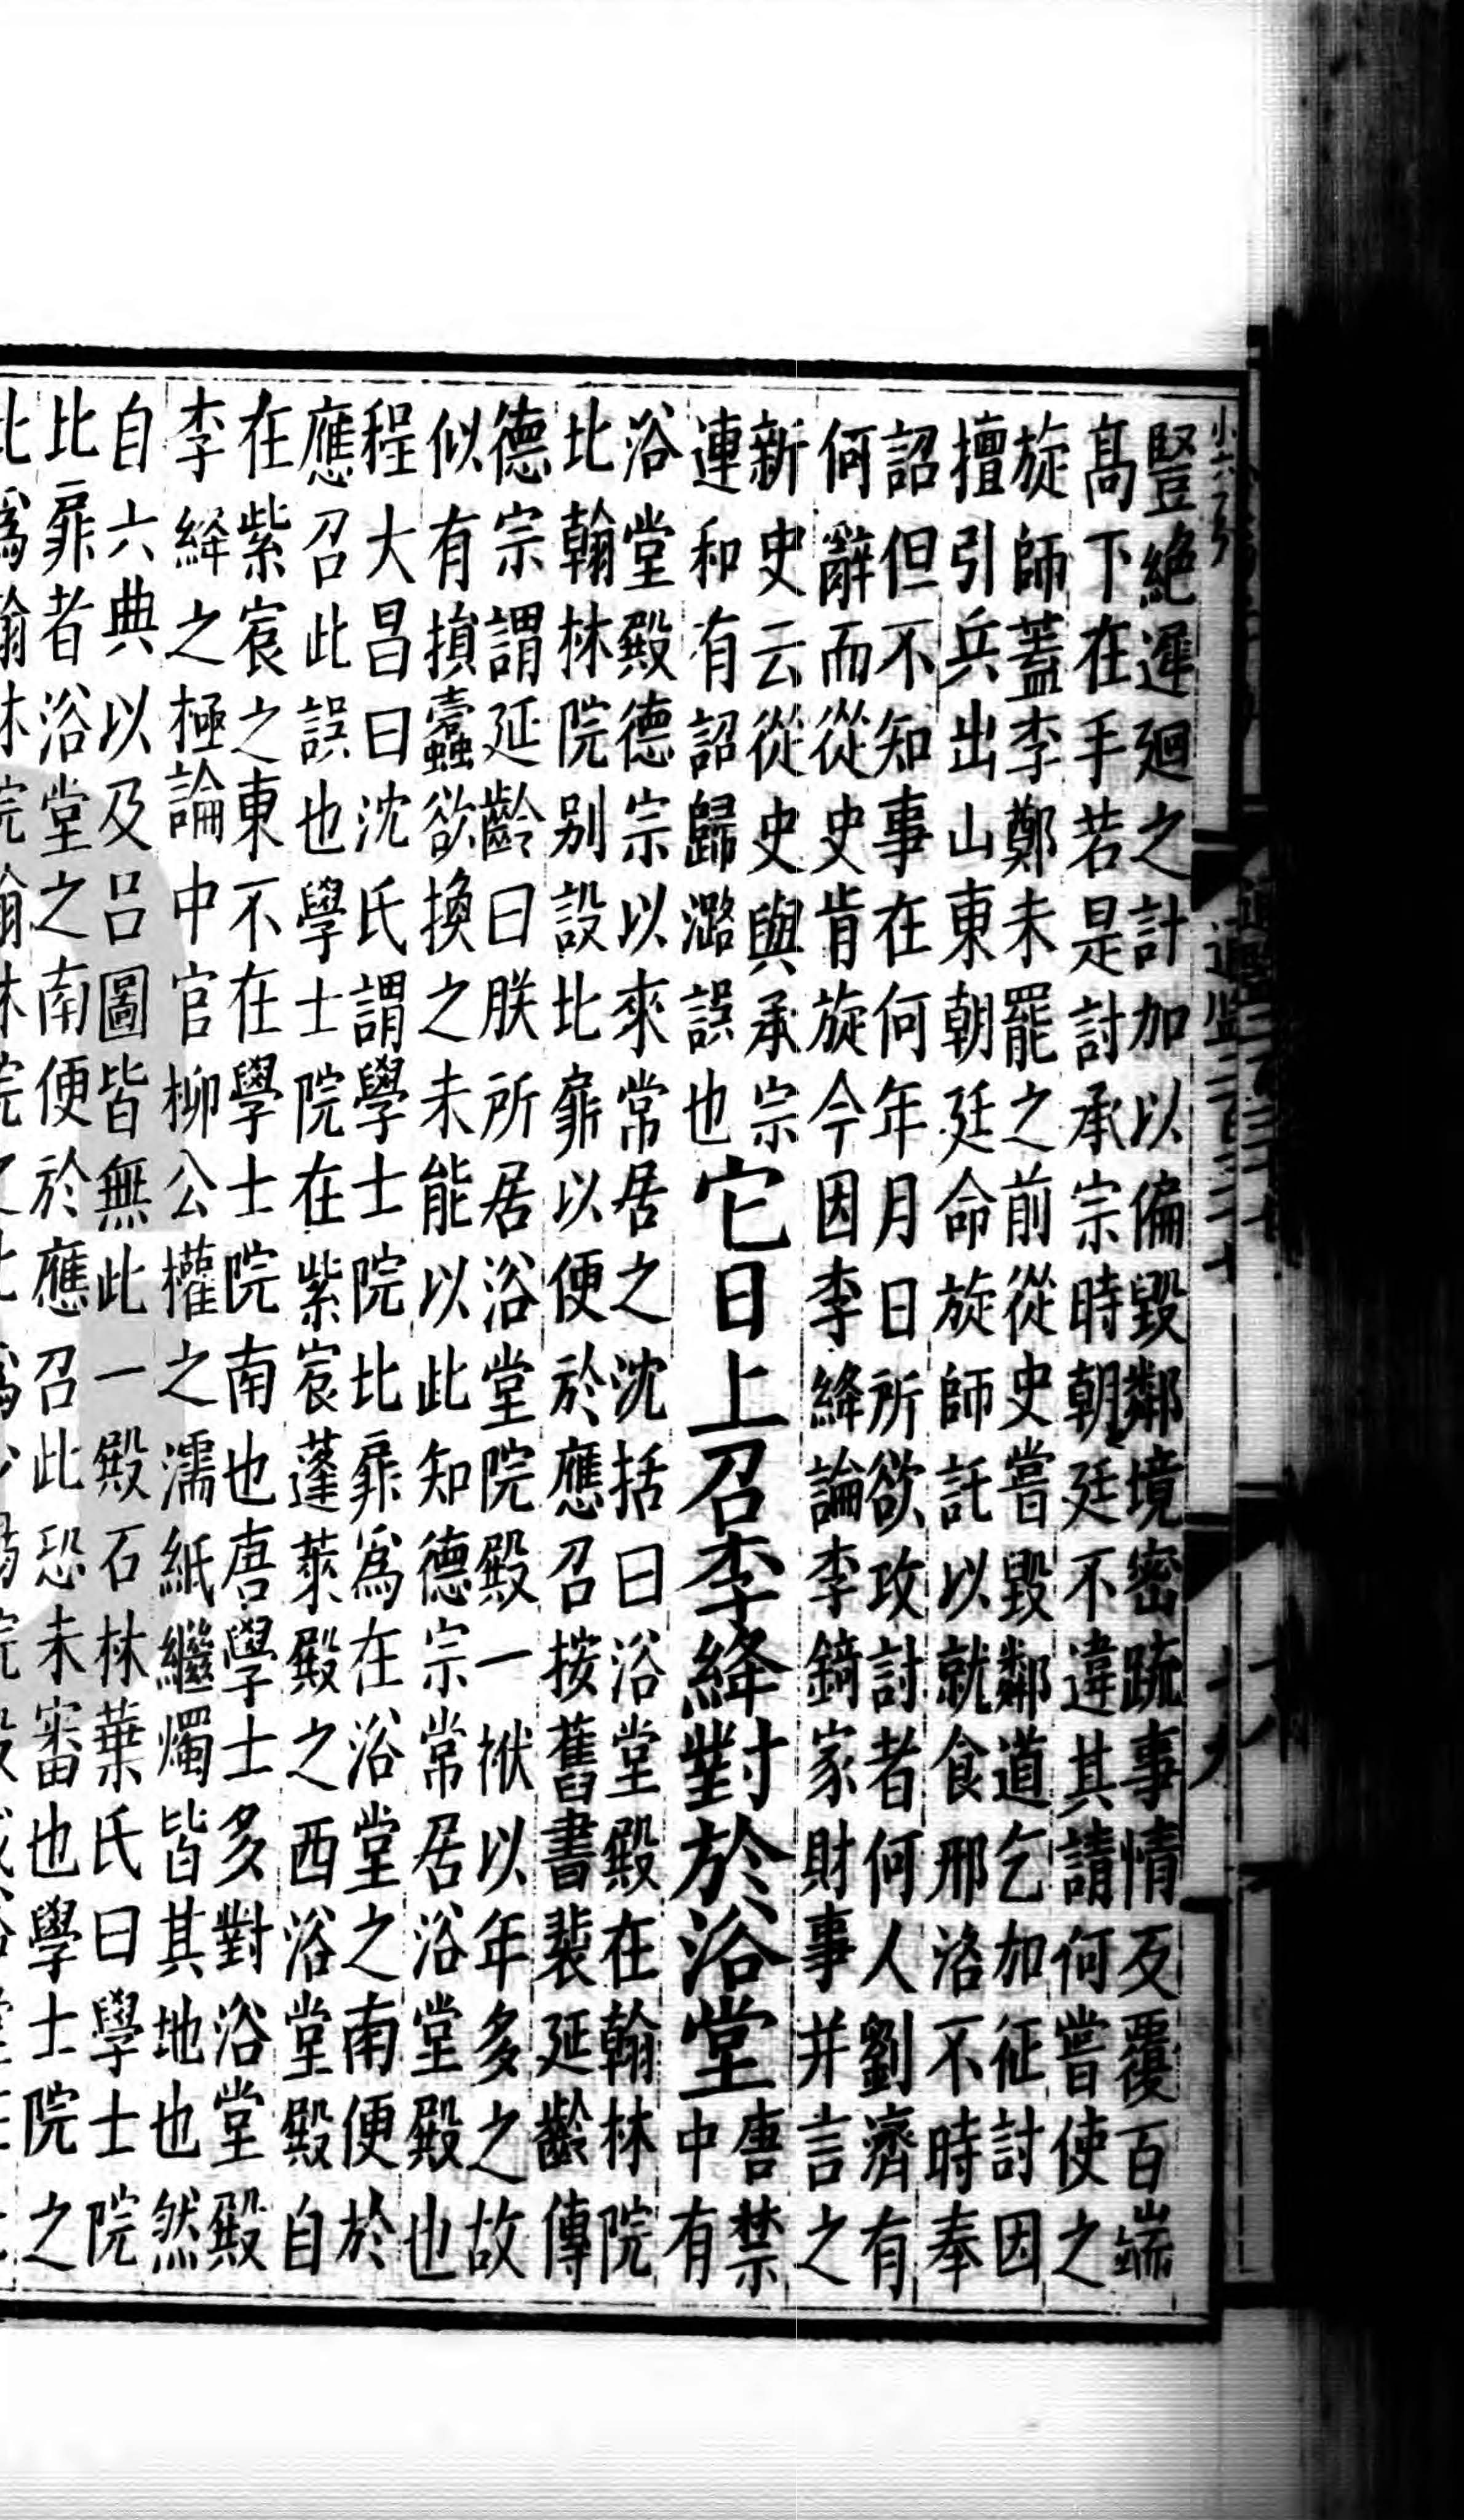 通鑑二百三十七 十九
豎絶遲廻之計加以偏毀鄰境密疏事情反覆百端
高下在手若是討承宗時朝廷不違其請何嘗使之
旋師蓋李鄭未罷之前從史嘗毀鄰道乞加征討因
擅引兵出山東朝廷命旋師託以就食邢洺不時奉
詔但不知事在何年月日所欲攻討者何人劉濟有
何辭而從史肯旋今因李絳論李錡家財事并言之
新史云從史與承宗
連和有詔歸潞誤也
它日上召李絳對於浴堂
唐禁
中有
浴堂殿德宗以來常居之沈括曰浴堂殿在翰林院
北翰林院别設北扉以便於應召按舊書裴延齡傳
德宗謂延齡曰朕所居浴堂院殿一栿以年多之故
似有損蠹欲換之未能以此知德宗常居浴堂殿也
程大昌曰沈氏謂學士院北扉爲在浴堂之南便於
應召此誤也學士院在紫宸蓬萊殿之西浴堂殿自
在紫宸之東不在學士院南也唐學士多對浴堂殿
李絳之極論中官柳公權之濡紙繼燭皆其地也然
自六典以及吕圖皆無此一殿石林葉氏曰學士院
北扉者浴堂之南便於應召此恐未審也學士院之